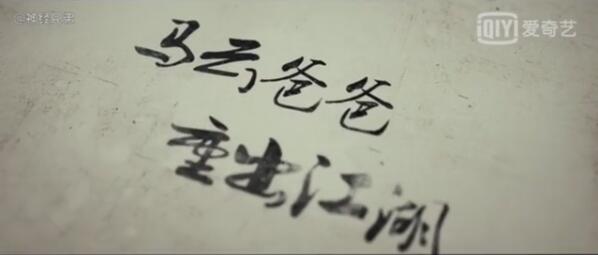 @神经兄弟
iQIYI 爱奇艺
马云爸爸
重出江湖